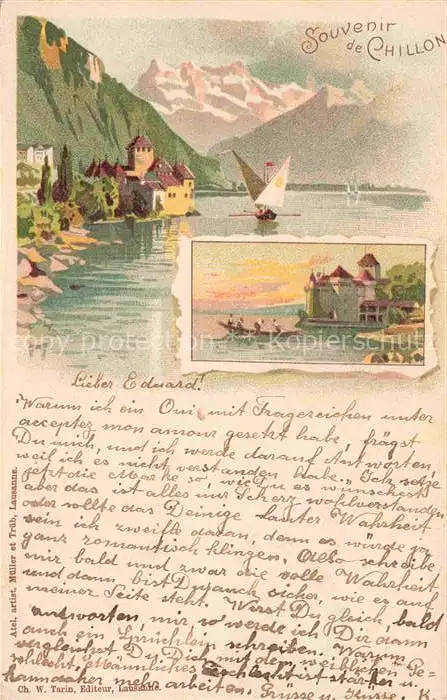 Souvenir
de CHILLON
Lieber Eduard!
Warum ich ein Oui mit Fragezeichen unter
accepter mon amour gesetzt habe, frägst
Du mich, und ich werde darauf Antworten,
weil ich es nicht verstanden habe. Ich setze
jetzt die Marke so, wie Du es wünschest
aber das ist alles nur Scherz wohlverstanden
oder sollte das Deinige lauter Wahrheit
sein ich zweifle daran, denn es würde ja
ganz romantisch klingen. Also schreibe
mir bald und zwar die volle Wahrheit
und dann bist Du auch sicher, wie es auf
meiner Seite steht. Wirst Du gleich, bald
antworten, mir so werde ich Dir dann
auch ein Sprüchlein schreiben. Warum
vergleichst Du Dich mit dem weiblichen Ge-
schlecht, Männliches Geschlecht ist starken u.
kann daher mehr arbeiten. Grüsse u. Küsse
Atel. artist. Müller et Trüb, Lausanne.
Ch. W. Tarin, Editeur, Lausanne.